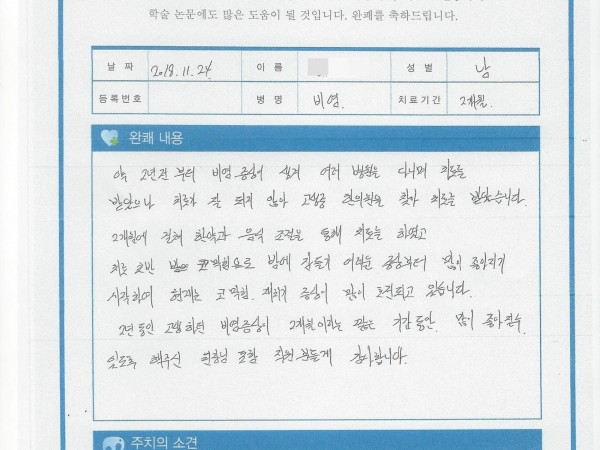 학술 논문에도 많은 도움이 될 것입니다. 완쾌를 축하드립니다.
날 짜 2018.11.24 이 름 성 별 남
등록번호 병 명 비염. 치료기간 2개월.
완쾌 내용
약 2년전 부터 비염 증상이 생겨 여러 병원을 다니며 치료를
받았으나 치료가 잘 되지 않아 고생중 한의원을 찾아 치료를 받았습니다.
2개월에 걸쳐 한약과 음식 조절을 통해 치료를 하였고
치료 초반 코막힘으로 밤에 잠들기 어려운 증상부터 많이 좋아지기
시작하여 현재는 코막힘, 재채기 증상이 많이 호전되고 있습니다.
2년 동안 고생하던 비염증상이 2개월이라는 짧은 기간동안 많이 좋아질수
있도록 해주신 원장님 포함 직원분들게 감사합니다.
주치의 소견